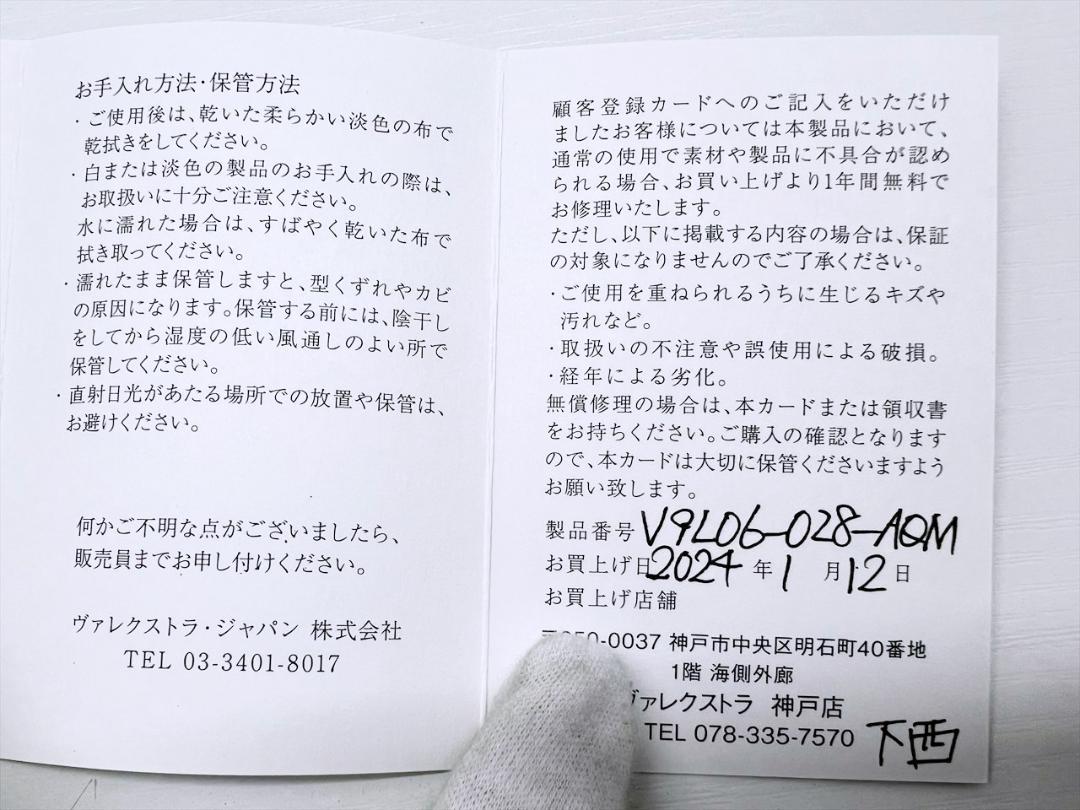 お手入れ方法・保管方法
・ご使用後は、乾いた柔らかい淡色の布で
乾拭きをしてください。
・白または淡色の製品のお手入れの際は、
お取扱いに十分ご注意ください。
水に濡れた場合は、すばやく乾いた布で
拭き取ってください。
・濡れたまま保管しますと、型くずれやカビ
の原因になります。保管する前には、陰干し
をしてから湿度の低い風通しのよい所で
保管してください。
・直射日光があたる場所での放置や保管は、
お避けください。
何かご不明な点がございましたら、
販売員までお申し付けください。
ヴァレクストラ・ジャパン 株式会社
TEL 03-3401-8017
顧客登録カードへのご記入をいただけ
ましたお客様については本製品において、
通常の使用で素材や製品に不具合が認め
られる場合、お買い上げより1年間無料で
お修理いたします。
ただし、以下に掲載する内容の場合は、保証
の対象になりませんのでご了承ください。
・ご使用を重ねられるうちに生じるキズや
汚れなど。
・取扱いの不注意や誤使用による破損。
・経年による劣化。
無償修理の場合は、本カードまたは領収書
をお持ちください。ご購入の確認となります
ので、本カードは大切に保管くださいますよう
お願い致します。
製品番号 V9L06-028-AQM
お買上げ日 2024 年 1 月 12 日
お買上げ店舗
〒650-0037 神戸市中央区明石町40番地
1階 海側外廊
ヴァレクストラ 神戸店
TEL 078-335-7570 下西